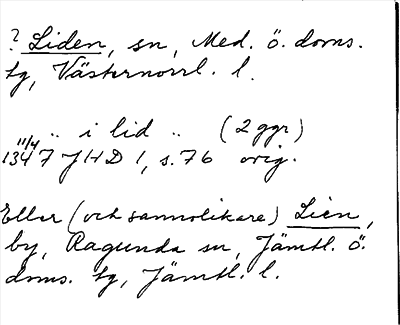 ? Liden, sn, Med. ö. doms.
tg, Västernorrl. l.
.. i lid .. (2 ggr)
11/4
1347 JHD 1, s. 76 orig.
Eller (och sannolikare) Lien,
by, Ragunda sn, Jämtl. ö.
doms. tg, Jämtl. l.